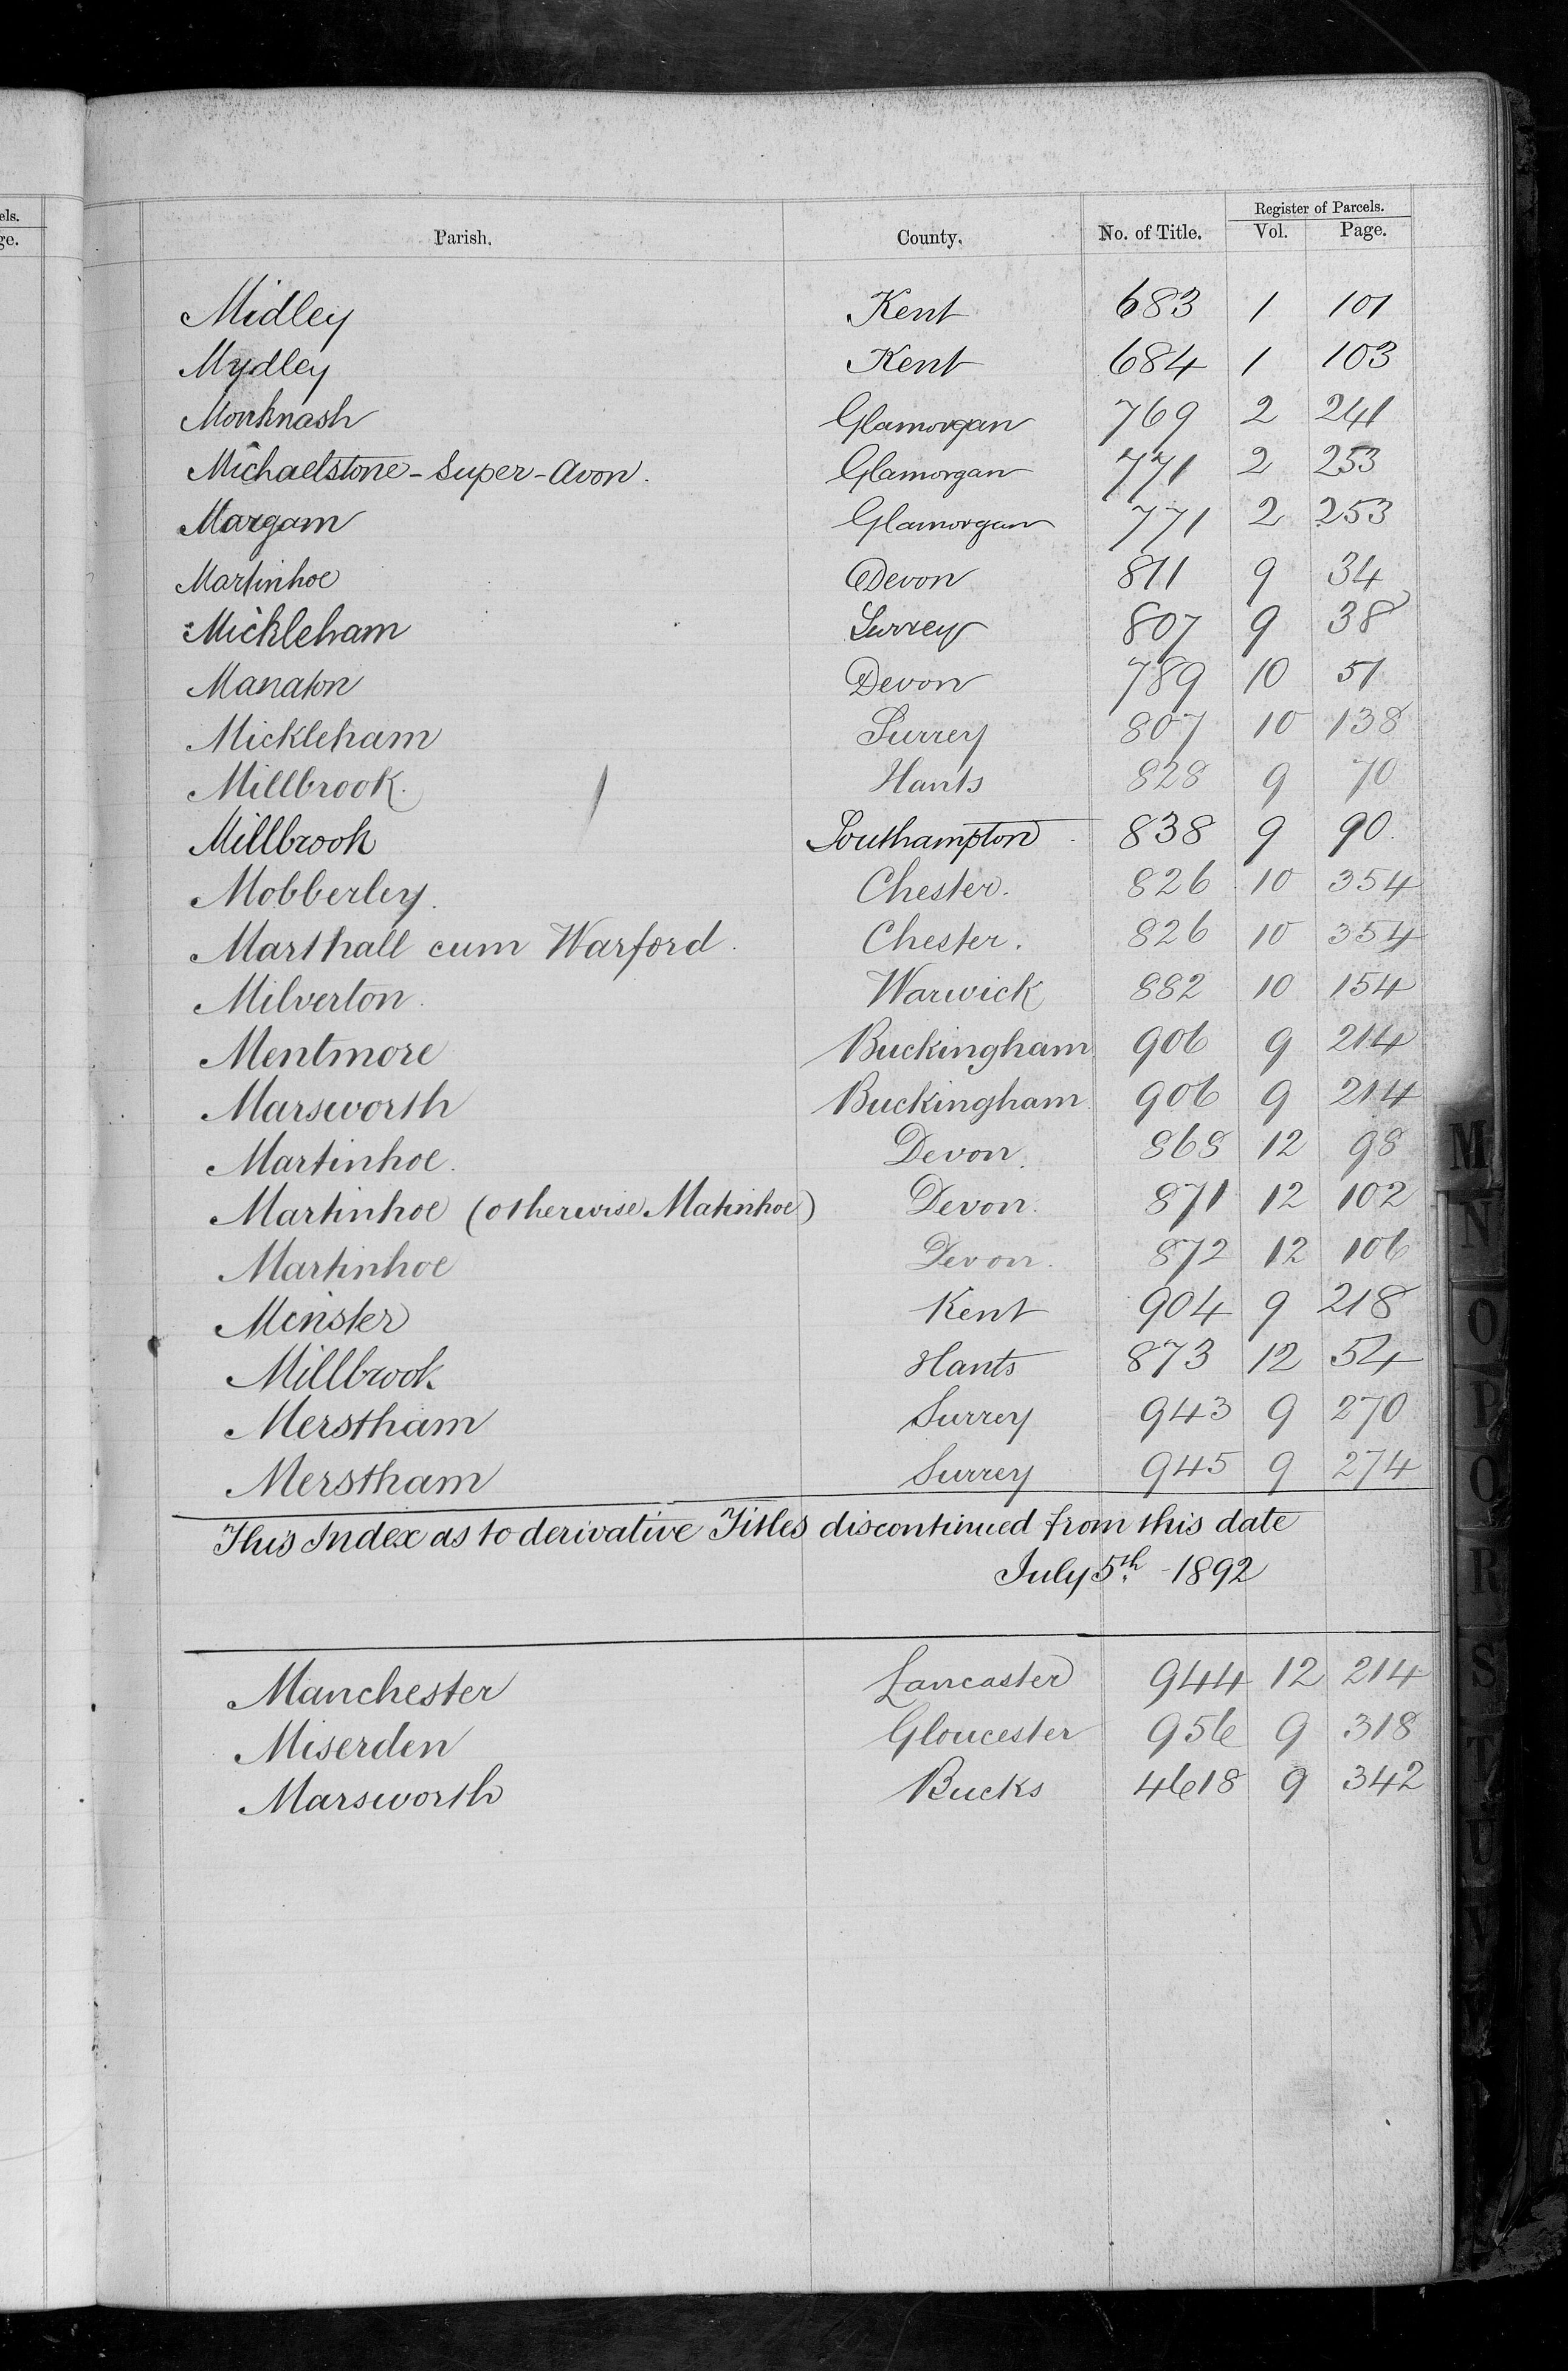 els.
ge.
Register of Parcels.
Parish. County. No. of Title. Vol. Page.
Midley Kent 683 1 101
Mydley Kent 684 1 103
Monknash Glamorgan 769 2 241
Michaelstone-Super-Avon. Glamorgan 771 2 253
Margam Glamorgan 771 2 253
Martinhoe Devon 811 9 34
Mickleham Surrey 807 9 38
Manaton Devon 789 10 51
Mickleham Surrey 807 10 138
Millbrook. Hants 828 9 70
Millbrook Southampton 838 9 90.
Mobberley. Chester. 826 10 354
Marthall cum Warford. Chester. 826 10 354
Milverton. Warwick 882 10 154
Mentmore Buckingham 906 9 214
Marsworth Buckingham 906 9 214
Martinhoe. Devon. 868 12 98
Martinhoe (otherwise Matinhoe) Devon. 871 12 102
Martinhoe Devon. 872 12 106
Minster Kent 904 9 218
Millbrook Hants 873 12 54
Merstham Surrey 943 9 270
Merstham Surrey 945 9 274
This Index as to derivative Titles discontinued from this date
July 5th 1892
Manchester Lancaster 944 12 214
Miserden Gloucester 956 9 318
Marsworth Bucks 4618 9 342
M
N
O
P
Q
R
S
T
U
V
W